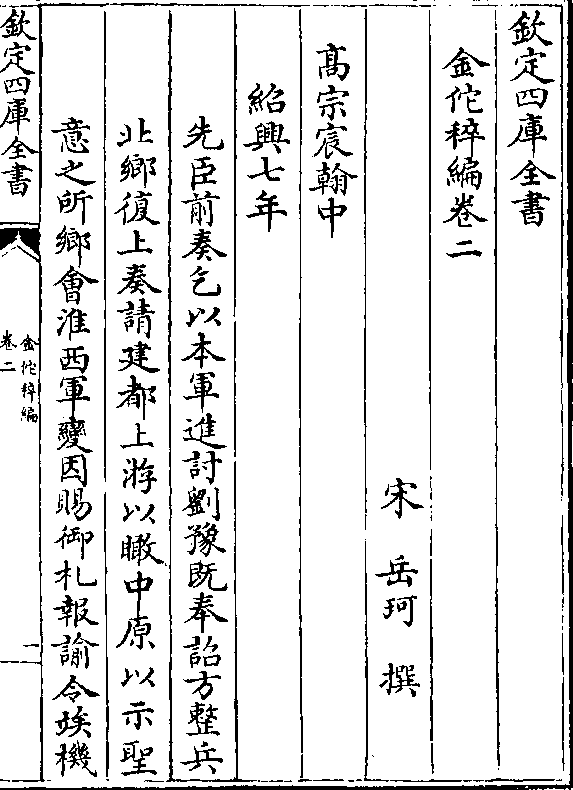 欽定四庫全書
金佗稡編卷二
宋岳珂撰
髙宗宸翰中
紹興七年
先臣前奏乞以本軍進討劉豫既奉詔方整兵
北鄉復上奏請建都上游以瞰中原以示聖
意之所鄉會淮西軍變因賜御札報諭令竢機
欽定四庫全書
金佗稡編
卷二
一